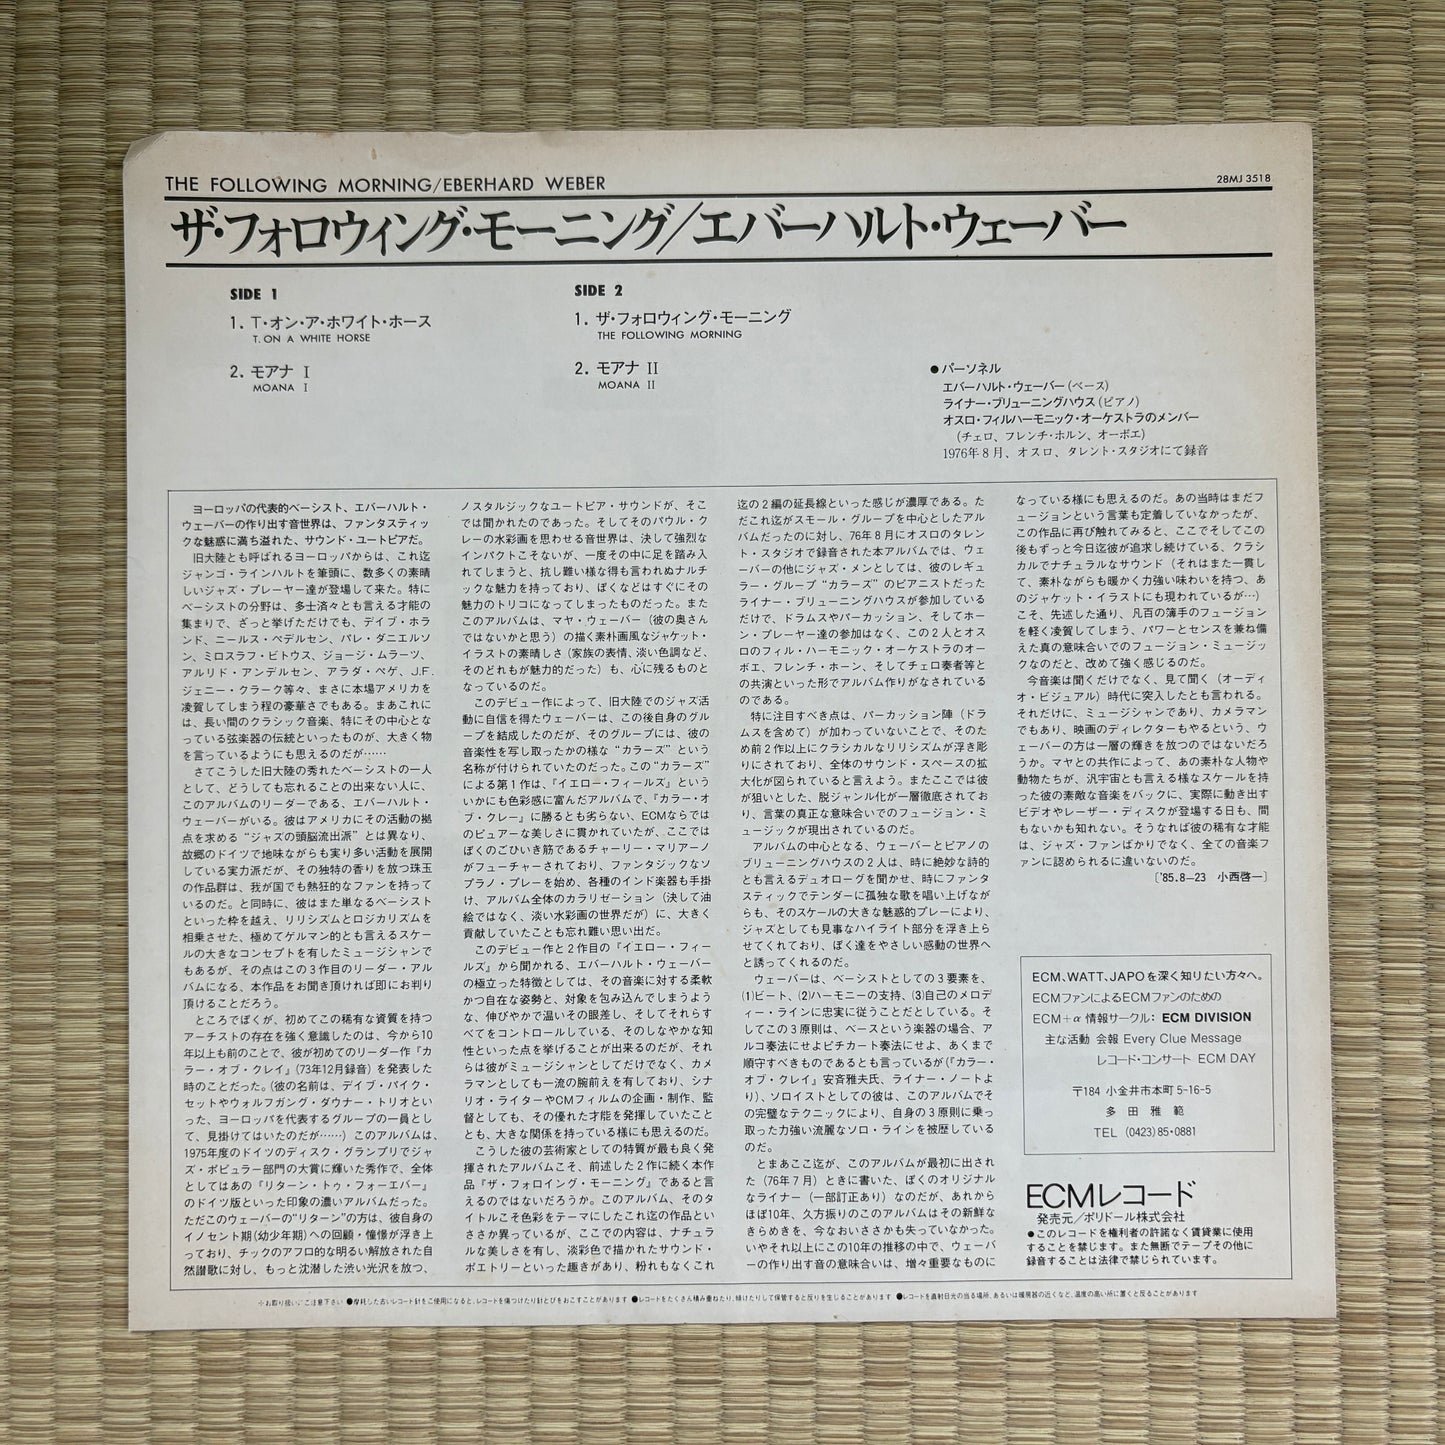 THE FOLLOWING MORNING/EBERHARD WEBER
28MJ 3518
ザ・フォロウィング・モーニング/エバーハルト・ウェーバー
SIDE 1
1. T・オン・ア・ホワイト・ホース
T. ON A WHITE HORSE
2. モアナ I
MOANA I
SIDE 2
1. ザ・フォロウィング・モーニング
THE FOLLOWING MORNING
2. モアナ II
MOANA II
●パーソネル
エバーハルト・ウェーバー(ベース)
ライナー・ブリューニングハウス(ピアノ)
オスロ・フィルハーモニック・オーケストラのメンバー
(チェロ、フレンチ・ホルン、オーボエ)
1976年8月、オスロ、タレント・スタジオにて録音
ヨーロッパの代表的ベーシスト、エバーハルト・
ウェーバーの作り出す音世界は、ファンタスティッ
クな魅惑に満ち溢れた、サウンド・ユートピアだ。
旧大陸とも呼ばれるヨーロッパからは、これ迄
ジャンゴ・ラインハルトを筆頭に、数多くの素晴
しいジャズ・プレーヤー達が登場して来た。特に
ベーシストの分野は、多士済々とも言える才能の
集まりで、ざっと挙げただけでも、デイブ・ホラ
ンド、ニールス・ペデルセン、パレ・ダニエルソ
ン、ミロスラフ・ビトウス、ジョージ・ムラーツ、
アルリド・アンデルセン、アラダ・ペゲ、J.F.
ジェニー・クラーク等々、まさに本場アメリカを
凌賀してしまう程の豪華さでもある。まあこれに
は、長い間のクラシック音楽、特にその中心とな
っている弦楽器の伝統といったものが、大きく物
を言っているようにも思えるのだが……
さてこうした旧大陸の秀れたベーシストの一人
として、どうしても忘れることの出来ない人に、
このアルバムのリーダーである、エバーハルト・
ウェーバーがいる。彼はアメリカにその活動の拠
点を求める“ジャズの頭脳流出派”とは異なり、
故郷のドイツで地味ながらも実り多い活動を展開
している実力派だが、その独特の香りを放つ珠玉
の作品群は、我が国でも熱狂的なファンを持って
いるのだ。と同時に、彼はまた単なるベーシスト
といった枠を越え、リリシズムとロジカリズムを
相乗させた、極めてゲルマン的とも言えるスケー
ルの大きなコンセプトを有したミュージシャンで
もあるが、その点はこの3作目のリーダー・アル
バムになる、本作品をお聞き頂ければ即にお判り
頂けることだろう。
ところでぼくが、初めてこの稀有な資質を持つ
アーチストの存在を強く意識したのは、今から10
年以上も前のことで、彼が初めてのリーダー作『カ
ラー・オブ・クレイ』(73年12月録音)を発表した
時のことだった。(彼の名前は、デイブ・パイク・
セットやウォルフガング・ダウナー・トリオとい
った、ヨーロッパを代表するグループの一員とし
て、見掛けてはいたのだが……)このアルバムは、
1975年度のドイツのディスク・グランプリでジャ
ズ・ポピュラー部門の大賞に輝いた秀作で、全体
としてはあの『リターン・トゥ・フォーエバー』
のドイツ版といった印象の濃いアルバムだった。
ただこのウェーバーの“リターン”の方は、彼自身の
イノセント期(幼少年期)への回顧・憧憬が浮き上
っており、チックのアフロ的な明るい解放された自
然讃歌に対し、もっと沈潜した渋い光沢を放つ、
ノスタルジックなユートピア・サウンドが、そこ
では聞かれたのであった。そしてそのパウル・ク
レーの水彩画を思わせる音世界は、決して強烈な
インパクトこそないが、一度その中に足を踏み入
れてしまうと、抗し難い様な得も言われぬナルチ
ックな魅力を持っており、ぼくなどはすぐにその
魅力のトリコになってしまったものだった。また
このアルバムは、マヤ・ウェーバー(彼の奥さん
ではないかと思う)の描く素朴画風なジャケット・
イラストの素晴しさ(家族の表情、淡い色調など、
そのどれもが魅力的だった)も、心に残るものと
なっているのだ。
このデビュー作によって、旧大陸でのジャズ活
動に自信を得たウェーバーは、この後自身のグル
ープを結成したのだが、そのグループには、彼の
音楽性を写し取ったかの様な“カラーズ”という
名称が付けられていたのだった。この“カラーズ”
による第1作は、『イエロー・フィールズ』という
いかにも色彩感に富んだアルバムで、『カラー・オ
ブ・クレー』に勝るとも劣らない、ECMならでは
のピュアーな美しさに貫かれていたが、ここでは
ぼくのごひいき筋であるチャーリー・マリアーノ
がフューチャーされており、ファンタジックなソ
プラノ・プレーを始め、各種のインド楽器も手掛
け、アルバム全体のカラリゼーション(決して油
絵ではなく、淡い水彩画の世界だが)に、大きく
貢献していたことも忘れ難い思い出だ。
このデビュー作と2作目の『イエロー・フィー
ルズ』から聞かれる、エバーハルト・ウェーバー
の極立った特徴としては、その音楽に対する柔軟
かつ自在な姿勢と、対象を包み込んでしまうよう
な、伸びやかで温いその眼差し、そしてそれらす
べてをコントロールしている、そのしなやかな知
性といった点を挙げることが出来るのだが、それ
らは彼がミュージシャンとしてだけでなく、カメ
ラマンとしても一流の腕前えを有しており、シナ
リオ・ライターやCMフィルムの企画・制作、監
督としても、その優れた才能を発揮していたこと
とも、大きな関係を持っている様にも思えるのだ。
こうした彼の芸術家としての特質が最も良く発
揮されたアルバムこそ、前述した2作に続く本作
品『ザ・フォロイング・モーニング』であると言
えるのではないだろうか。このアルバム、そのタ
イトルこそ色彩をテーマにしたこれ迄の作品とい
ささか異っているが、ここでの内容は、ナチュラ
ルな美しさを有し、淡彩色で描かれたサウンド・
ポエトリーといった趣きがあり、紛れもなくこれ
迄の2編の延長線といった感じが濃厚である。た
だこれ迄がスモール・グループを中心としたアル
バムだったのに対し、76年8月にオスロのタレン
ト・スタジオで録音された本アルバムでは、ウェ
ーバーの他にジャズ・メンとしては、彼のレギュ
ラー・グループ“カラーズ”のピアニストだった
ライナー・ブリューニングハウスが参加している
だけで、ドラムスやパーカッション、そしてホー
ン・プレーヤー達の参加はなく、この2人とオス
ロのフィル・ハーモニック・オーケストラのオー
ボエ、フレンチ・ホーン、そしてチェロ奏者等と
の共演といった形でアルバム作りがなされている
のである。
特に注目すべき点は、パーカッション陣(ドラ
ムスを含めて)が加わっていないことで、そのた
め前2作以上にクラシカルなリリシズムが浮き彫
りにされており、全体のサウンド・スペースの拡
大化が図られていると言えよう。またここでは彼
が狙いとした、脱ジャンル化が一層徹底されてお
り、言葉の真正な意味合いでのフュージョン・ミ
ュージックが現出されているのだ。
アルバムの中心となる、ウェーバーとピアノの
ブリューニングハウスの2人は、時に絶妙な詩的
とも言えるデュオローグを聞かせ、時にファンタ
スティックでテンダーに孤独な歌を唱い上げなが
らも、そのスケールの大きな魅惑的プレーにより、
ジャズとしても見事なハイライト部分を浮き上ら
せてくれており、ぼく達をやさしい感動の世界へ
と誘ってくれるのだ。
ウェーバーは、ベーシストとしての3要素を、
(1)ビート、(2)ハーモニーの支持、(3)自己のメロデ
ィー・ラインに忠実に従うことだとしている。そ
してこの3原則は、ベースという楽器の場合、ア
ルコ奏法にせよピチカート奏法にせよ、あくまで
順守すべきものであるとも言っているが(『カラー・
オブ・クレイ』安斉雅夫氏、ライナー・ノートよ
り)、ソロイストとしての彼は、このアルバムでそ
の完璧なテクニックにより、自身の3原則に乗っ
取った力強い流麗なソロ・ラインを被歴している
のだ。
とまあここ迄が、このアルバムが最初に出され
た(76年7月)ときに書いた、ぼくのオリジナル
なライナー(一部訂正あり)なのだが、あれから
ほぼ10年、久方振りのこのアルバムはその新鮮な
きらめきを、今なおいささかも失っていなかった。
いやそれ以上にこの10年の推移の中で、ウェーバ
ーの作り出す音の意味合いは、増々重要なものに
なっている様にも思えるのだ。あの当時はまだフ
ュージョンという言葉も定着していなかったが、
この作品に再び触れてみると、ここでそしてこの
後もずっと今日迄彼が追求し続けている、クラシ
カルでナチュラルなサウンド(それはまた一貫し
て、素朴ながらも暖かく力強い味わいを持つ、あ
のジャケット・イラストにも現われているが…)
こそ、先述した通り、凡百の簿手のフュージョン
を軽く凌賀してしまう、パワーとセンスを兼ね備
えた真の意味合いでのフュージョン・ミュージッ
クなのだと、改めて強く感じるのだ。
今音楽は聞くだけでなく、見て聞く(オーディ
オ・ビジュアル)時代に突入したとも言われる。
それだけに、ミュージシャンであり、カメラマン
でもあり、映画のディレクターもやるという、ウ
ェーバーの方は一層の輝きを放つのではないだろ
うか。マヤとの共作によって、あの素朴な人物や
動物たちが、汎宇宙とも言える様なスケールを持
った彼の素敵な音楽をバックに、実際に動き出す
ビデオやレーザー・ディスクが登場する日も、間
もないかも知れない。そうなれば彼の稀有な才能
は、ジャズ・ファンばかりでなく、全ての音楽フ
ァンに認められるに違いないのだ。
〔'85.8—23 小西啓一〕
ECM、WATT、JAPOを深く知りたい方々へ。
ECMファンによるECMファンのための
ECM+α 情報サークル: ECM DIVISION
主な活動 会報 Every Clue Message
レコード・コンサート ECM DAY
〒184 小金井市本町5-16-5
多田雅範
TEL (0423)85・0881
ECMレコード
発売元/ポリドール株式会社
●このレコードを権利者の許諾なく賃貸業に使用
することを禁じます。また無断でテープその他に
録音することは法律で禁じられています。
※お取り扱いにご注意下さい ●摩耗した古いレコード針をご使用になると、レコードを傷つけたり針とびをおこすことがあります ●レコードをたくさん積み重ねたり、傾けたりして保管すると反りを生じることがあります ●レコードを直射日光の当る場所、あるいは暖房器の近くなど、温度の高い所に置くと反ることがあります